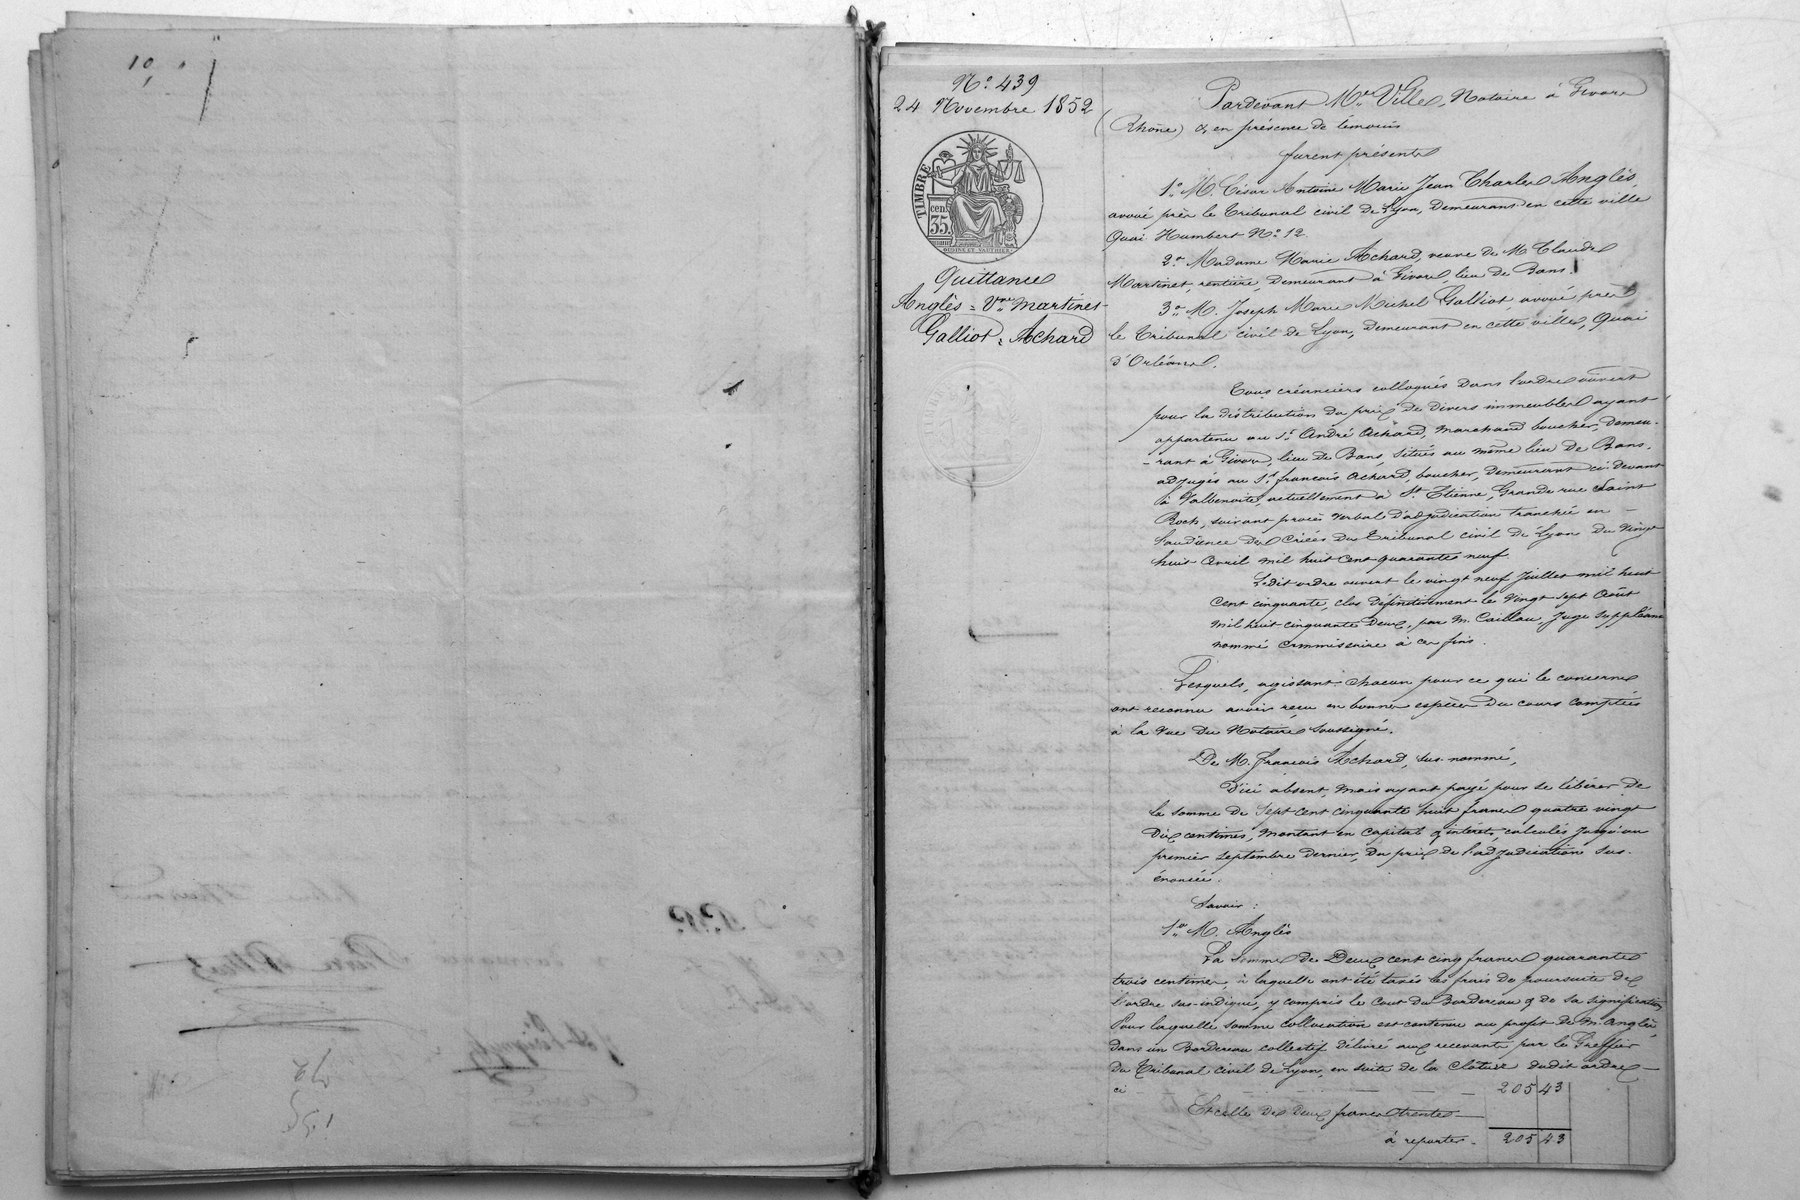 10
N° 439
24 Novembre 1852
TIMBRE
35 cent
OUDINÉ ET VAUTHIER
Quittance
Anglès = Vve Martinet
Galliot = Achard
Pardevant Me Ville, Notaire à Givors
(Rhône) &, en présence de témoins
furent présents
1° M. César Antoine Marie Jean Charles Anglès
avoué près le Tribunal civil de Lyon, demeurant en cette ville
Quai Humbert N° 12
2° Madame Marie Achard, veuve de M. Claude
Martinet, rentière, demeurant à Givors lieu de Bans.
3° M. Joseph Marie Michel Galliot, avoué près
le Tribunal civil de Lyon, demeurant en cette ville, Quai
d'Orléans.
Tous créanciers colloqués dans l'ordre ouvert
pour la distribution du prix de divers immeubles ayant
appartenu au Sr André Achard, marchand boucher, demeu-
-rant à Givors, lieu de Bans, situés au même lieu de Bans,
adjugés au Sr françois Achard, boucher, demeurant ci-devant
à Valbenoite, actuellement à St Etienne, Grande rue Saint
Roch, suivant procès verbal d'adjudication tranchée en
l'audience des Criées du Tribunal civil de Lyon du Vingt
huit Avril mil huit cent quarante neuf
Ledit ordre ouvert le vingt neuf Juillet mil huit
cent cinquante, clos définitivement le Vingt sept Août
mil huit cinquante deux, par M. Caillau, Juge suppléant
nommé Commissaire à ces fins.
Lesquels, agissant chacun pour ce qui le concerne
ont reconnu avoir reçu en bonnes espèces du cours comptées
à la vue du Notaire soussigné.
De M. françois Achard, sus-nommé,
D'ici absent, mais ayant payé pour se libérer de
la somme de Sept cent cinquante huit francs quatre vingt
dix centimes, montant en capital & intérêts, calculés jusqu'au
premier septembre dernier, du prix de l'adjudication sus-
énoncée.
Savoir :
1° M. Anglès
La somme de Deux cent cinq francs quarante
trois centimes, à laquelle ont été taxés les frais de poursuite de
l'ordre sus-indiqué, y compris le Cout du Bordereau & de sa signification,
Pour laquelle somme collocation est contenue au profit de M. Anglès
dans un Bordereau collectif délivré aux recevants par le Greffier
du Tribunal civil de Lyon, en suite de la clôture dudit ordre
ci — 205 43
Et celle de deux francs trente
à reporter. 205 43